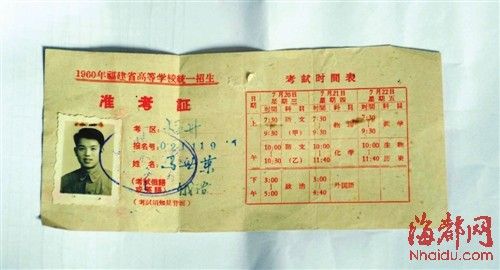 1960年福建省高等学校統一招生
准考証
考区
报名号 021119
姓名 馬
(考試須知見背面)
考試時間表
日期 7月20日 星期三 7月21日 星期四 7月22日 星期五
时間 科目 时間 科目 时間 科目
上午 7:30 9:30 語文(甲) 7:30 9:30 物理 7:30 9:30 数学
10:00 10:30 語文(乙) 10:00 11:40 化学 10:00 11:40 生物 历史
下午 3:00 5:00 政治 3:00 5:40 外国語
海都网
Nhaidu.com